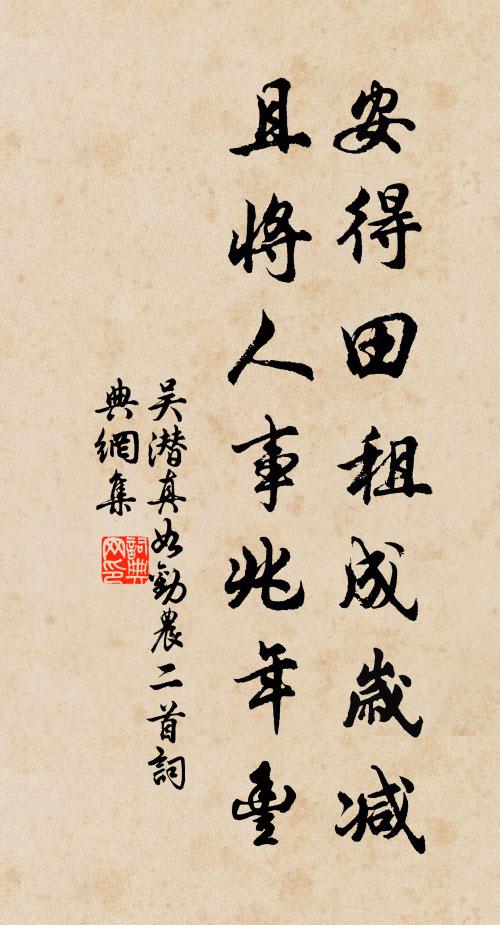 安得田租成歲减
且將人事兆年豐
吴潛真如勸農二首詞
典網集
詞典
网印